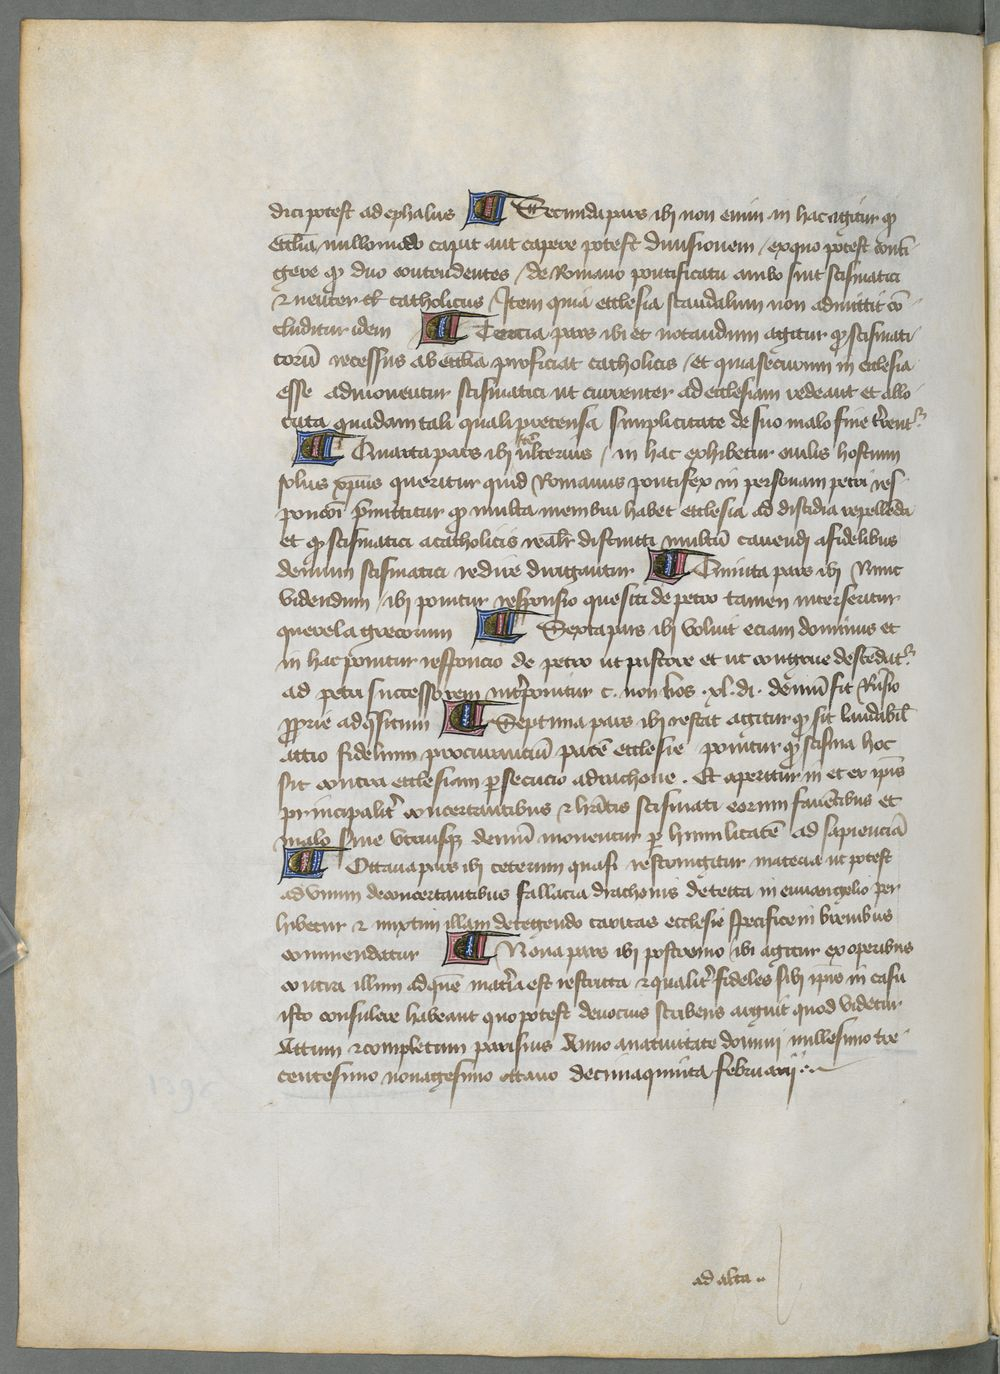 dici potest adephalus Secunda pars ibi non enim in hac agitur qꝫ
ecclīa nullomodo caput aut capere potest diuisionem / exquo potest conti
gere qꝫ duo contendentes / de Romano pontificatu ambo sint scismatici
⁊ neuter catholicus / Item quia ecclesia scandalum non admittit cō
cluditur idem Tercia pars ibi et notandum agitur qꝫ scismati
corū recessus ab ecclīa proficiat catholicis / et quasecurum in ecclesia
esse admonentur scismatici ut currenter ad ecclesiam redeant et allo
cuta quadam tali quali pretensa simplicitate de suo malo fine
Quarta pars ibi vlterius / in hac exhibetur euilis hostium
solus xp̄us queritur quid Romanus pontifex in personam petri res
qꝫ multa membra habet ecclesia ad discidia repellēda
et qꝫ scismatici acatholicis realr̄ distincti multū cauendi afidelibus
demum scismatici redire dirigantur Quinta pars ibi Nunc
videndum / ibi ponitur responsio quesiti de petro tamen interseritur
querela grecorum Sexta pars ibi voluit eciam dominus et
in hac ponitur responcio de petro ut pastore et ut congrue
ad petri successorem c. non vos .xl. di. demū fit
prie ad q̄situm Septima pars ibi restat agitur qꝫ sit laudabil̄
actio fidelium procuranciū pacē ecclesie ponitur qꝫ scisma hoc
sit contra ecclesiam persecucio adrachone . Et aperitur in et ex ipīs
principalit̄ concertantibus ⁊ scismati eorum fauētibus et
malo fine vtriusqꝫ demū monentur per humilitatē ad sapienciā
Octaua pars ibi ceterum quasi restringitur materia ut potest
ad vnum deconcertantibus fallacia drachonis detecta in euuangelio per
hibetur ⁊ mixtim illam detegendo caritas ecclesie specifice in
commendatur Nona pars ibi postremo ibi agitur ex operibus
contra illum ad quē mat̄ia est restricta ⁊ qualit̄ fideles sibi ipīs in casu
isto consulere habeant quo potest deuocius scribens arguit quod videtur
Actum ⁊ completum parisius Anno anatiuitate domini millesimo tre
centesimo nonagesimo octauo decimaquinta februarii
ad alta ..